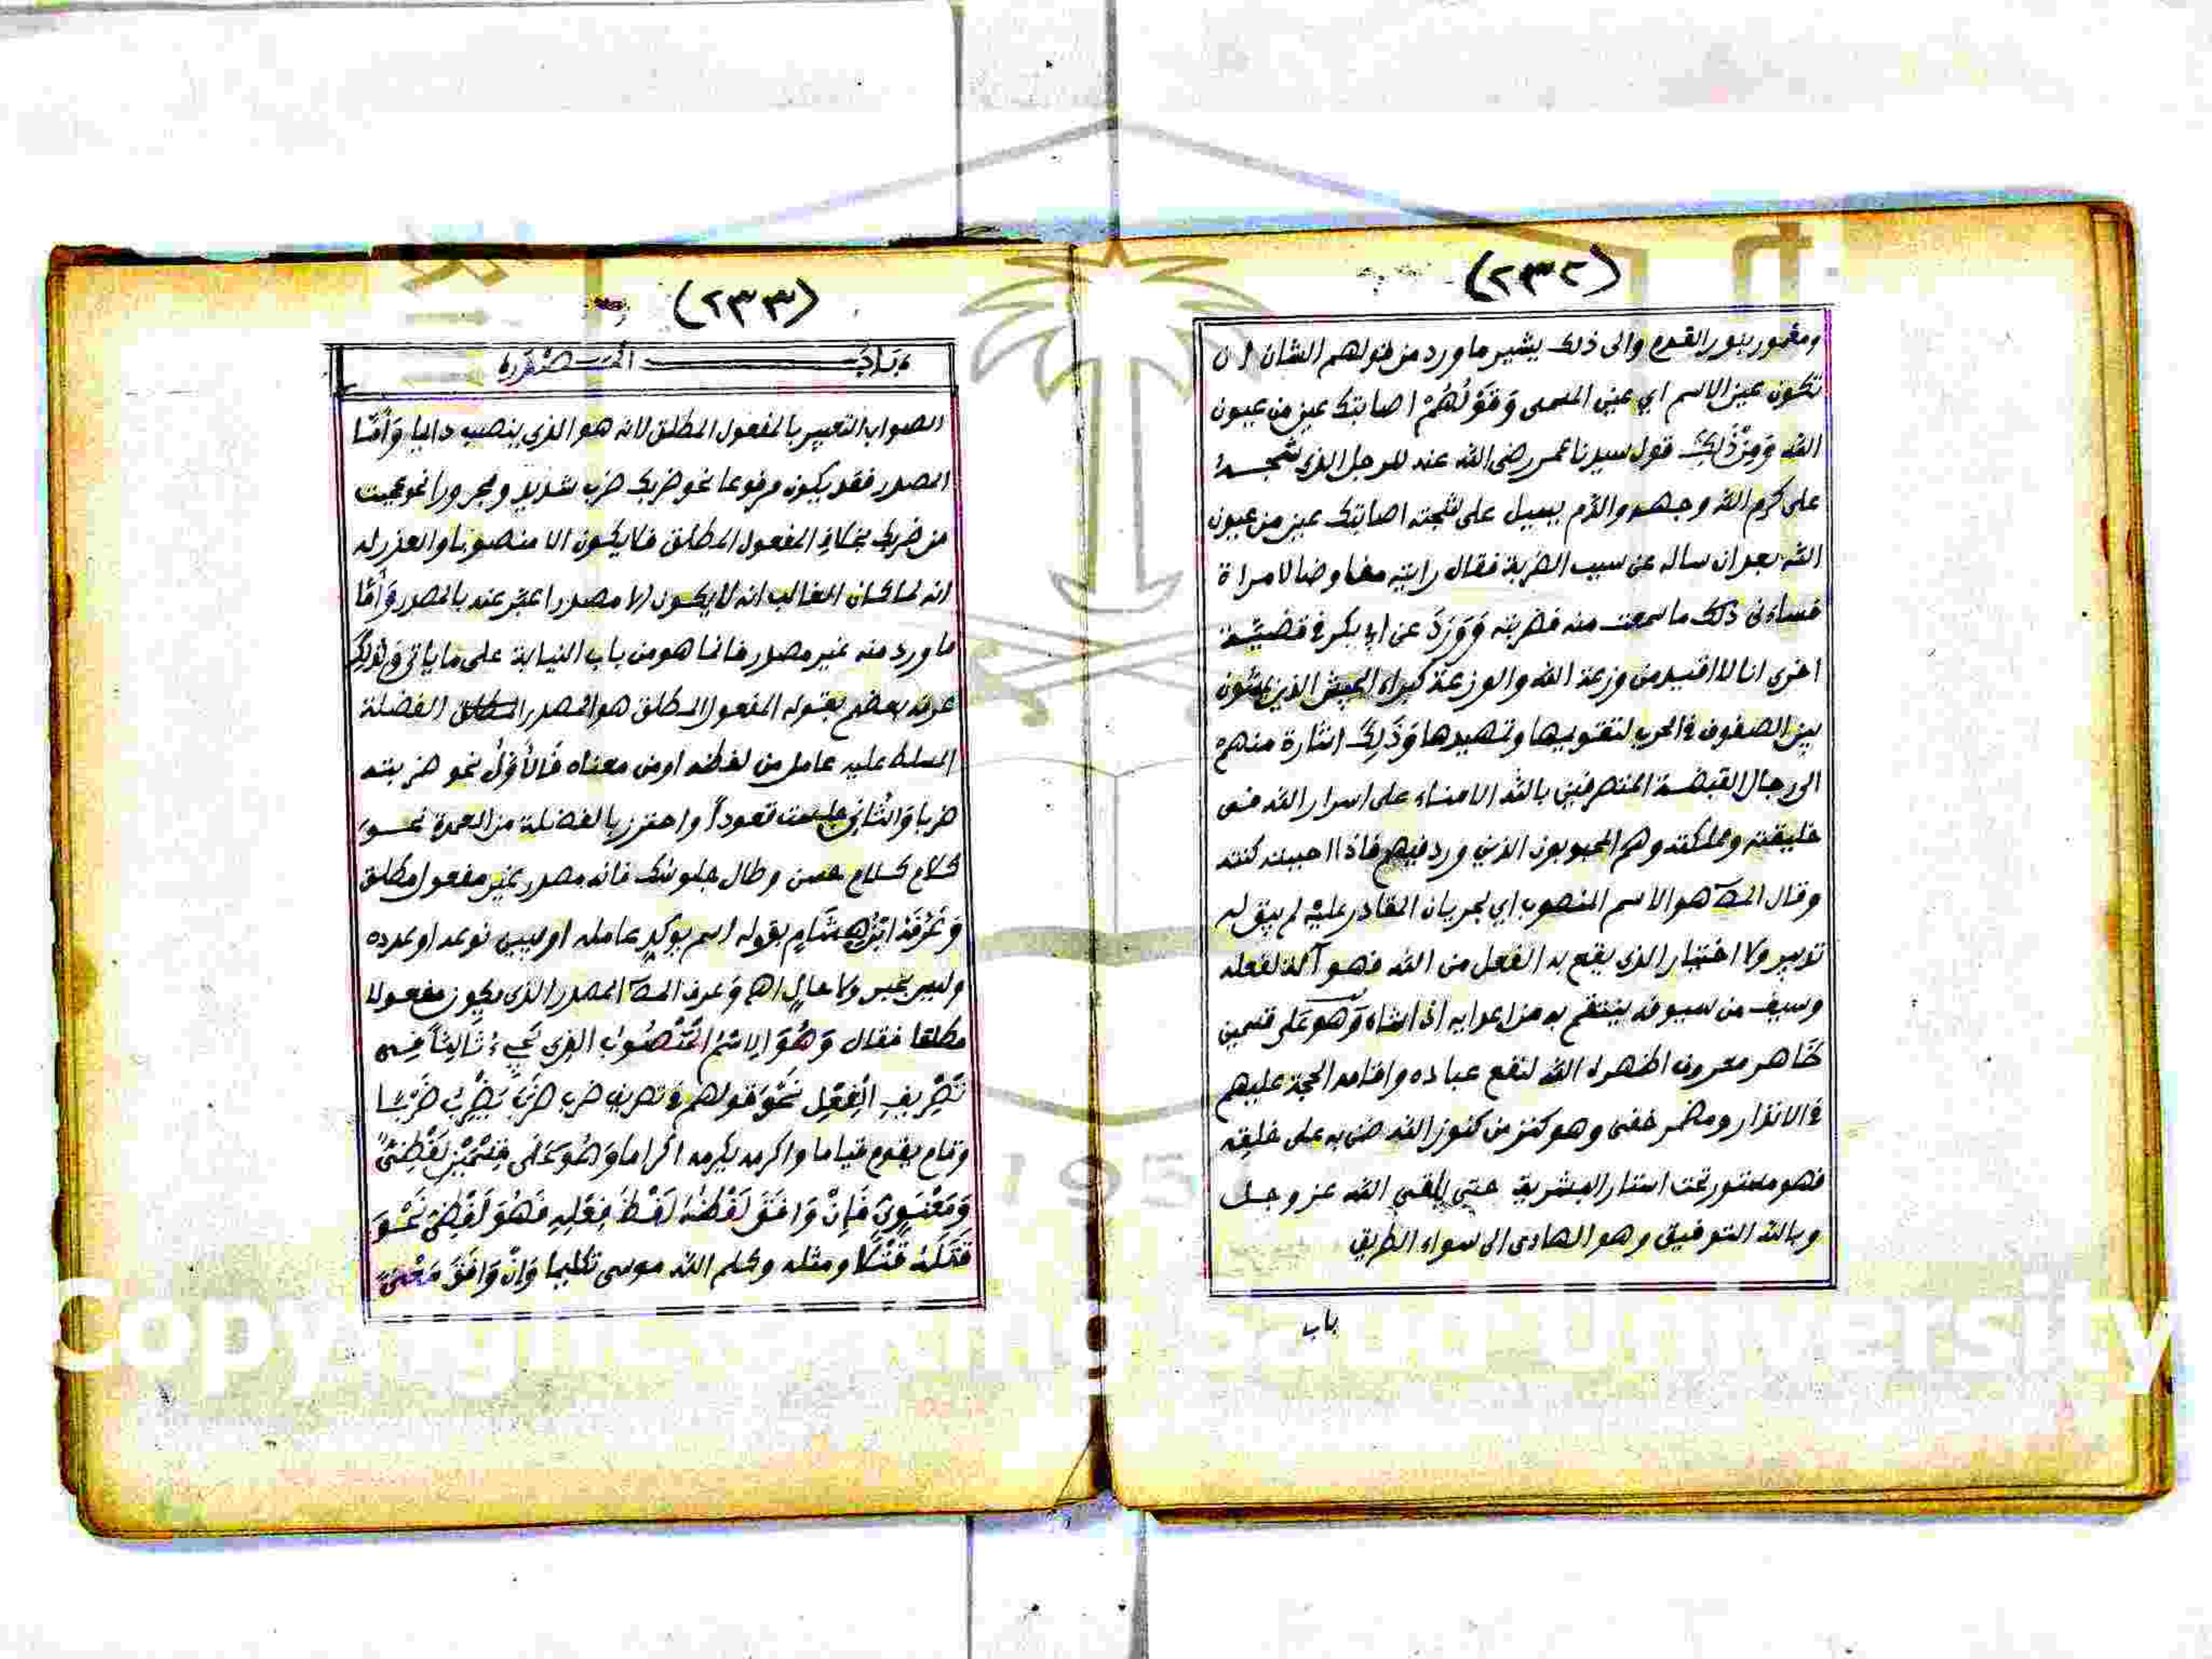 (٢٣٢)
ومغمور بنور القدم والى ذلك يشير ما ورد من قولهم الشان ان
تكون عين الاسم اي عين المسمى وَقَوْلُهُمْ اصابتك عين من عيون
الله وَمِنْ ذَلِكَ قول سيدنا عمر رضى الله عنه للرجل الذى شجه
على كرم الله وجهه والدم يسيل على شجته اصابتك عين من عيون
الله بعد ان ساله عن سبب الضربة فقال رايته مفاوضا لامراة
فساءنى ذلك ما سمعت منه فضربته وَوَرَدَ عن ابى بكر فى قضية
اخرى انا لا اقيد من وزعة الله والوزعة كبراء الجيش الذين يمشون
بين الصفوف فى الحرب لتقويمها وتمهيدها وَذَلِكَ اشارة منهم
الى رجال القبضة المتصرفين بالله الامناء على اسرار الله فى
خليقته ومملكته وهم المحبوبون الذين ورد فيهم فاذا احببته كنته
وقال المص هو الاسم المنصوب اي لجريان القادر عليه لم يبق له
تدبير ولا اختيار الذى يقع به الفعل من الله فهو آلة لفعله
وسيف من سيوفه ينتقم به من اعدايه اذا شاء وَهو عَلى قسمين
ظَاهر معروف اظهره الله لنفع عباده واقامة الحجة عليهم
فى الانذار ومضمر خفى وهو كنز من كنوز الله ضن به على خلقه
فهو مستور تحت استار البشرية حتى يلقى الله عز وجل
وبالله التوفيق وهو الهادى الى سواء الطريق
باب
(٢٣٣)
بَابُ المَصْدَرِ
الصواب التعبير بالمفعول المطلق لانه هو الذى ينصب دايما وَأَمَّا
المصدر فقد يكون مرفوعا نحو ضربك ضرب شديد ومجرورا نحو عجبت
من ضربك بخلاف المفعول المطلق فلا يكون الا منصوبا والعذر له
انه لما كان الغالب انه لا يكون الا مصدرا عبر عنه بالمصدر وَأَمَّا
ما ورد منه غير مصدر فانما هو من باب النيابة على ما ياتى وَلِذَلِكَ
عرفه بعضهم بقوله المفعول المطلق هو المصدر الفضلة
المسلط عليه عامل من لفظه او من معناه فَالأَوَّلُ نحو ضربته
ضربا وَالثَّانِى جلست قعوداً واحترز بالفضلة من العمدة نحو
كلام كلام حسن وطال جلوسك فانه مصدر غير مفعول مطلق
وَعَرَّفَهُ ابْنُ هِشَامٍ بقوله اسم يوكد عامله او يبين نوعه او عدده
وليس بخبر ولا حال اهـ وَعرف المص المصدر الذى يكون مفعولا
مطلقا فقال وَهُوَ الاسْمُ الْمَنْصُوبُ الَّذِى يَجِيءُ ثَالِثاً فِى
تَصْرِيفِ الْفِعْلِ نَحْوَ قولهم فى تصريف ضرب ضَرَبَ يَضْرِبُ ضَرْبًا
وقام يقوم قياما واكرمه يكرمه اكراما وَهُوَ عَلَى قِسْمَيْنِ لَفْظِىٌّ
وَمَعْنَوِىٌّ فَإِنْ وَافَقَ لَفْظُهُ لَفْظَ فِعْلِهِ فَهُوَ لَفْظِىٌّ نَحْوَ
قَتَلْتُهُ قَتْلًا ومثله وكلم الله موسى تكليما وَإِنْ وَافَقَ مَعْنَى
Copyright © King Saud University